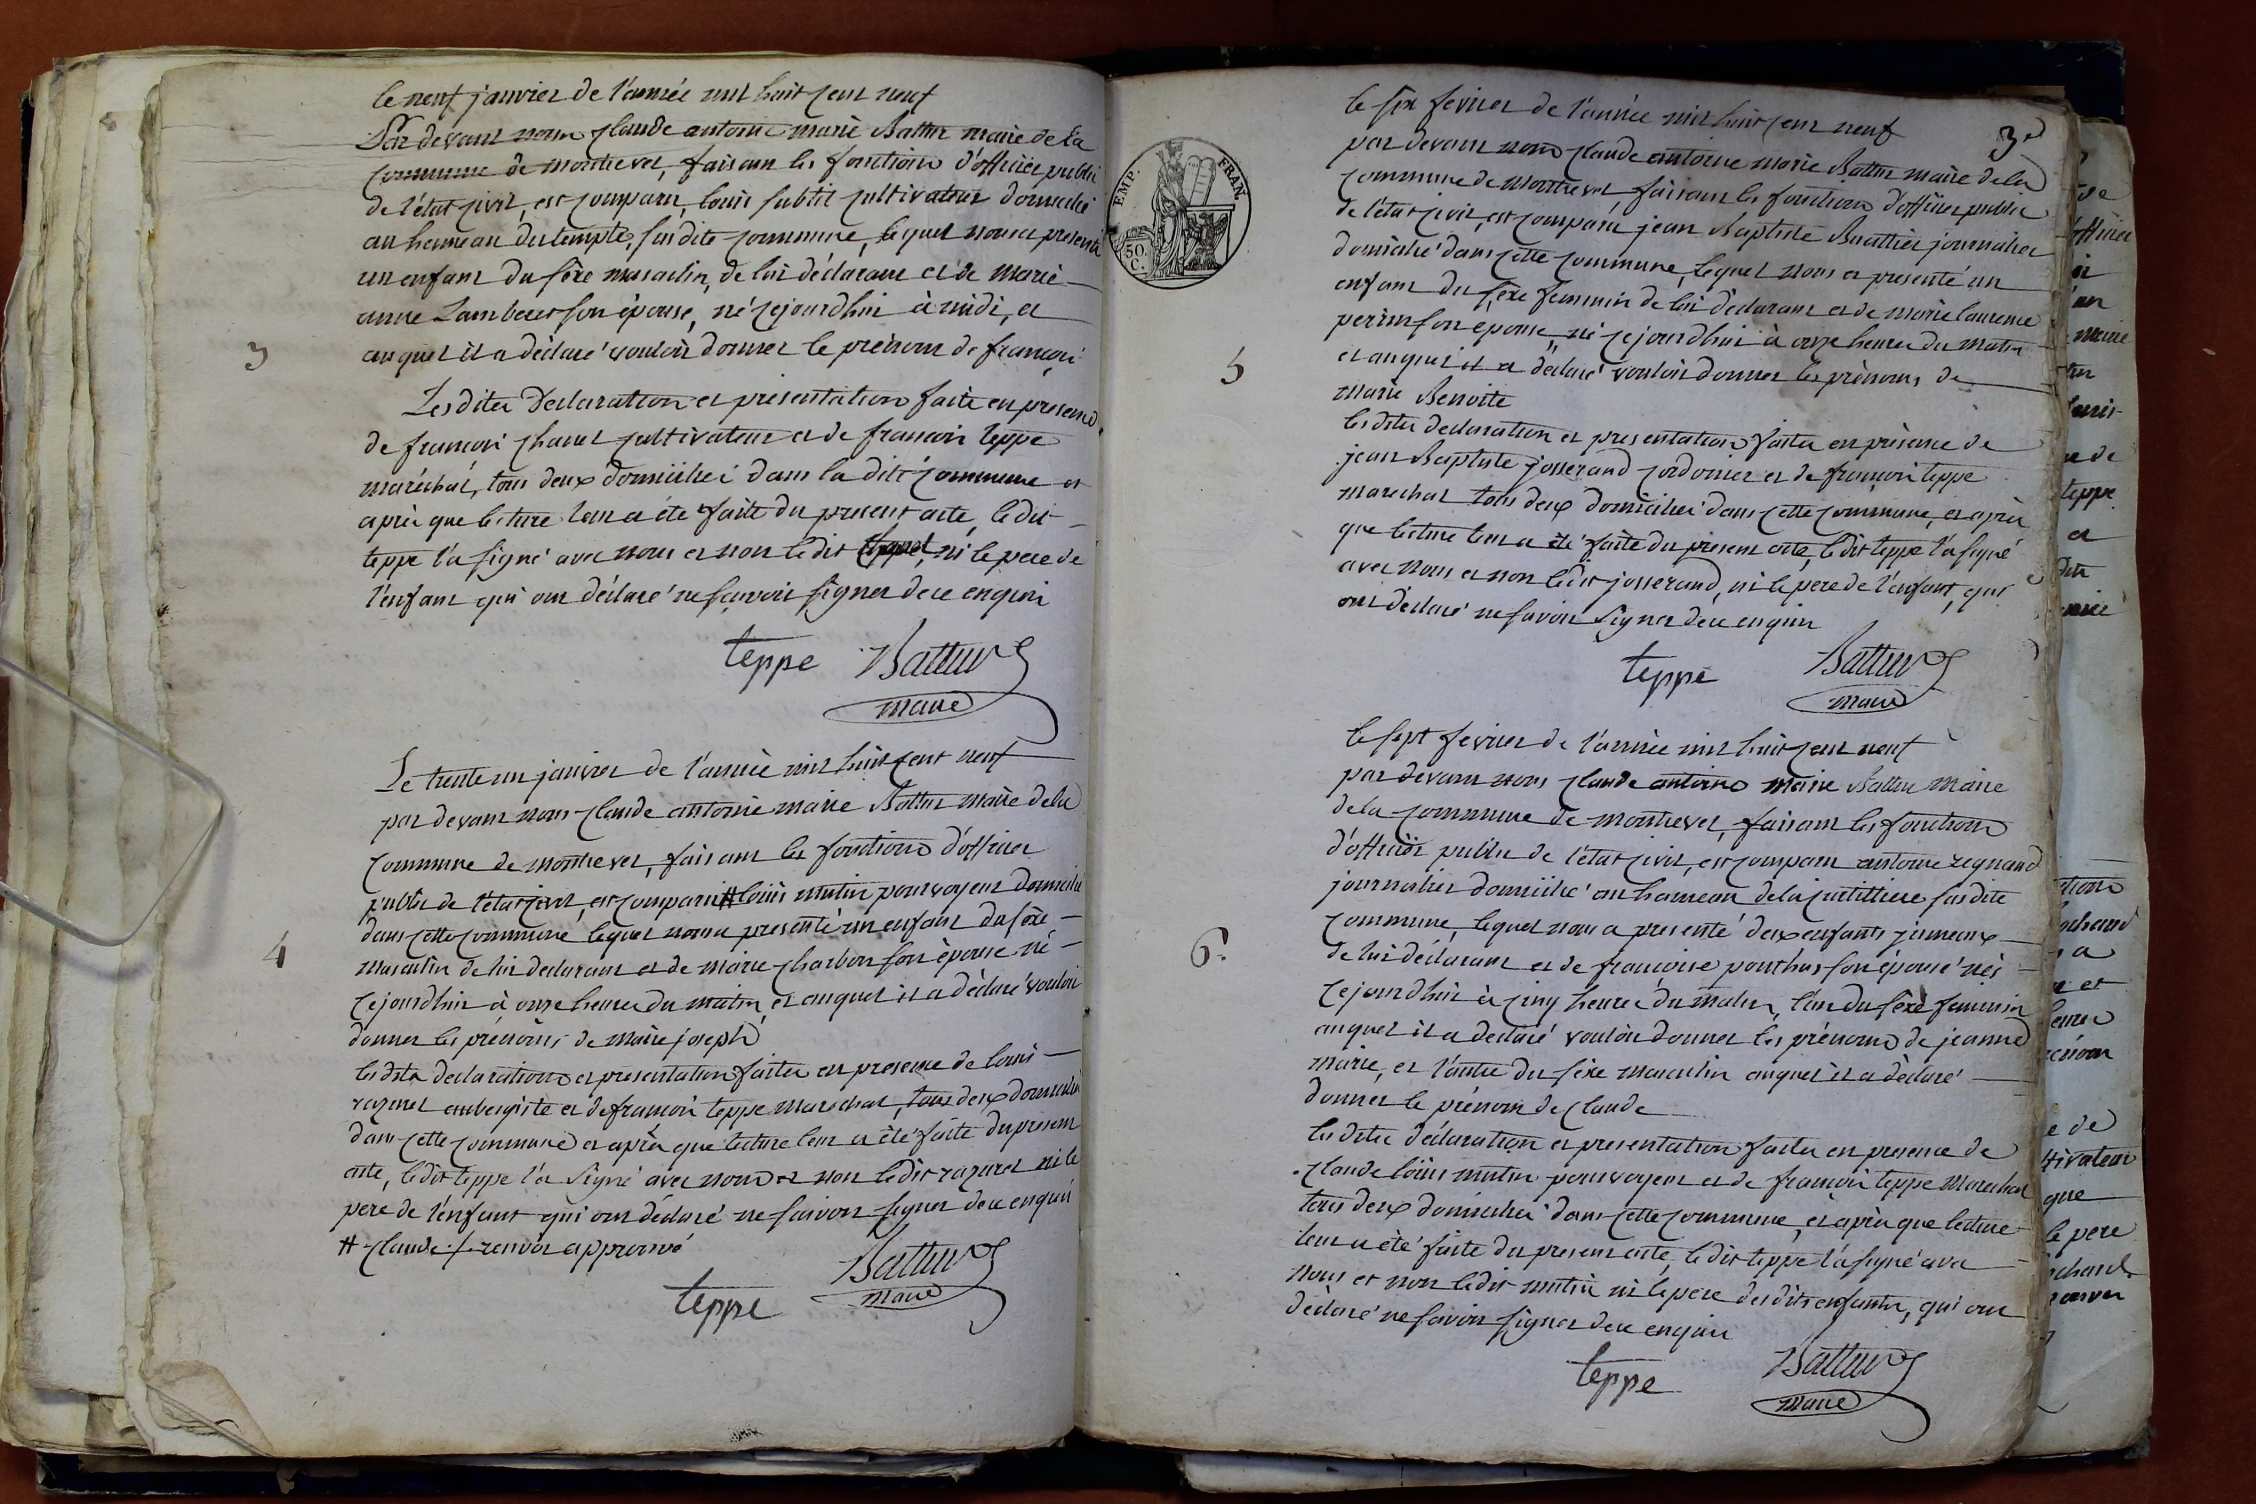 le neuf janvier de l'année mil huit cent neuf
Par devant nous Claude antoine marie Battur maire de la
commune de montrevel, faisant les fonctions d'officier public
de l'état civil, est comparu, louis subtil cultivateur domicilié
au hameau du temple, susdite commune, lequel nous a présenté
un enfant du sèxe masculin, de lui déclarant et de marie
anne Lamberet son épouse, né cejourdhui à midi, et
3
auquel il a déclaré vouloir donner le prénom de françois
Lesdites Déclaration et présentation faite en presence
de françois chanel cultivateur et de françois teppe
maréchal, tous deux domiciliés dans la dite commune et
après que lecture leur a été faite du present acte, le dit
teppe l'a signé avec nous et non ledit ni le pere de
l'enfant qui ont déclaré ne sçavoir signer de ce enquis
teppe Battur
maire
Le trente un janvier de l'année mil huit cent neuf
par devant nous Claude antoine marie Battur maire dela
commune de montrevel, faisant les fonctions d'officier
public de l'état civil, est comparu # louis mutin pourvoyeur domicilié
dans cette commune lequel nous a presenté un enfant du sèxe
4
masculin de lui déclarant et de marie charbon son épouse né
cejourdhui à onze heures du matin, et auquel il a déclaré vouloir
donner les prénoms de marie joseph
lesdites declaration et presentation faites en presence de louis
razurel aubergiste et de françois teppe marechal, tous deux domiciliés
dans cette commune et après que lecture leur a été faite du present
acte, ledit teppe l'a signé avec nous et non ledit razurel ni le
pere de l'enfant qui ont déclaré ne savoir signer de ce enquis
# Claude ./. renvoi approuvé
Battur
maire
teppe
EMP. FRAN.
50.
C.
le six fevrier de l'année mil huit cent neuf
3e
par devant nous Claude antoine marie Battur maire dela
commune de montrevel, faisant les fonctions d'officier public
de l'état civil, est comparu jean Baptiste Buattier journalier
domicilié dans cette commune, lequel nous a presenté un
enfant du sèxe feminin de lui déclarant et de marie laurence
perin son épouse, né cejourdhui à onze heures du matin
5
et auquel il a déclaré vouloir donner les prénoms de
marie Benoite
les dites declaration et presentation faites en présence de
jean Baptiste josserand cordonier et de françois teppe
marechal tous deux domiciliés dans cette commune, et après
que lecture leur a été faite du present acte, ledit teppe l'a signé
avec nous et non ledit josserand, ni le pere de l'enfant, qui
ont déclaré ne savoir signer de ce enquis
teppe Battur
maire
le sept fevrier de l'année mil huit cent neuf
par devant nous Claude antoine marie Battur maire
dela commune de montrevel, faisant les fonctions
d'officier public de l'état civil, est comparu antoine regnaud
journalier domicilié au hameau de la susdite
commune, lequel nous a presenté deux enfants jumeaux
6.
de lui déclarant et de francoise ponthus son épouse nés
cejourdhui à cinq heures du matin, l'un du sèxe feminin
auquel il a déclaré vouloir donner les prénoms de jeanne
marie, et l'autre du sèxe masculin auquel il a déclaré
donner le prénom de Claude
les dites déclaration et presentation faites en presence de
Claude loüis mutin pourvoyeur et de françois teppe marechal
tous deux domiciliés dans cette commune, et après que lecture
leur a été faite du present acte, ledit teppe l'a signé avec
nous et non ledit mutin ni le pere desdits enfants, qui ont
déclaré ne savoir signer de ce enquis
teppe Battur
maire